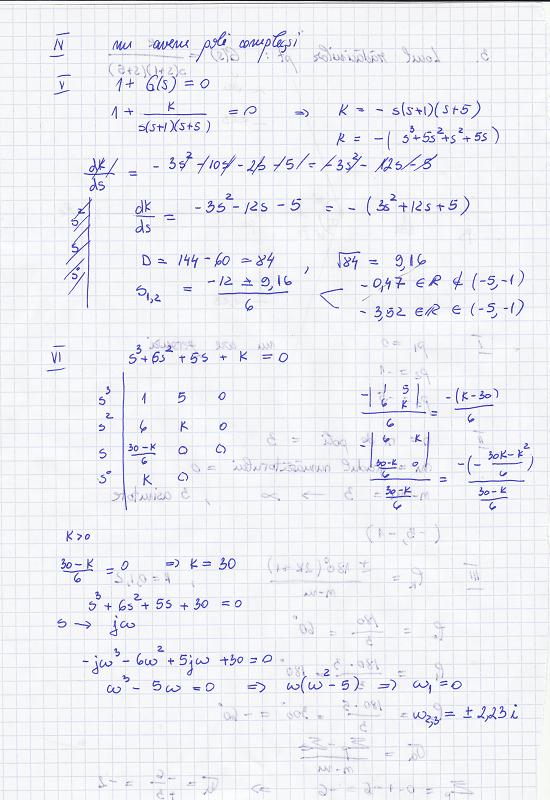 IV nu avem poli complecși
V 1 + G(s) = 0
1 + K / s(s+1)(s+5) = 0 ⇒ K = - s(s+1)(s+5)
K = -( s³+5s²+s²+5s)
dK/ds = - 3s² - 10s - 2s - 5 = -3s² - 12s - 5
s² dK/ds = -3s² - 12s - 5 = - (3s² + 12s + 5)
s
s⁰ D = 144 - 60 = 84 , √84 = 9,16
s₁,₂ = -12 ± 9,16 / 6 < - 0,47 ∈ R ∉ (-5,-1)
- 3,52 ∈ R ∈ (-5,-1)
VI s³+6s²+5s + K = 0
s³ | 1 5 0 -|1 5; 6 K| / 6 = -(K-30) / 6
s² | 6 K 0
s | 30-K/6 0 0 -|6 K; 30-K/6 0| / 30-K/6 = -(- 30K-K²/6) / 30-K/6
s⁰ | K 0
K>0
30-K/6 = 0 ⇒ K = 30
s³ + 6s² + 5s + 30 = 0
s → jω
-jω³ - 6ω² + 5jω + 30 = 0
ω³ - 5ω = 0 ⇒ ω(ω²-5) ⇒ ω₁ = 0
ω₂,₃ = ± 2,23 i